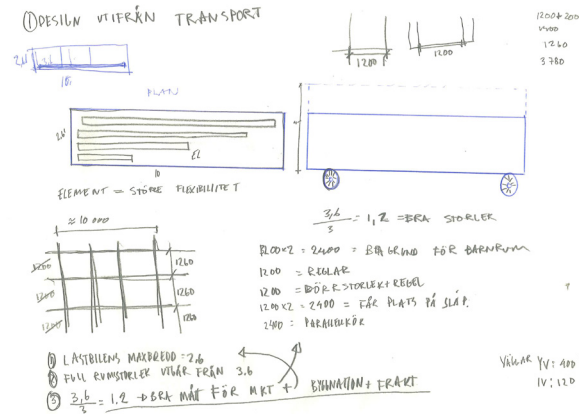 ① DESIGN UTIFRÅN TRANSPORT
1200
1200
1260
3780
2,6
3,6
10
PLAN
2,6
10
ELEMENT = STÖRRE FLEXIBILITET
≈ 10 000
1200
1200
1200
1260
1260
1260
3,6
3
= 1,2 = BRA STORLEK
1200x2 = 2400 = BRA GRUND FÖR BARNRUM
1200 = REGLAR
1200 = DÖRRSTORLEK + REGEL
1200x2 = 2400 = FÅR PLATS PÅ SLÄP.
2400 = PARALLELLKÖK
① LASTBILENS MAXBREDD = 2,6
② FULL RUMSTORLEK UTGÅR FRÅN 3,6
③ 3,6
3
= 1,2 → BRA MÅTT FÖR MKT + BYGGNATION + FRAKT
VÄGGAR YV: 400
IV: 120